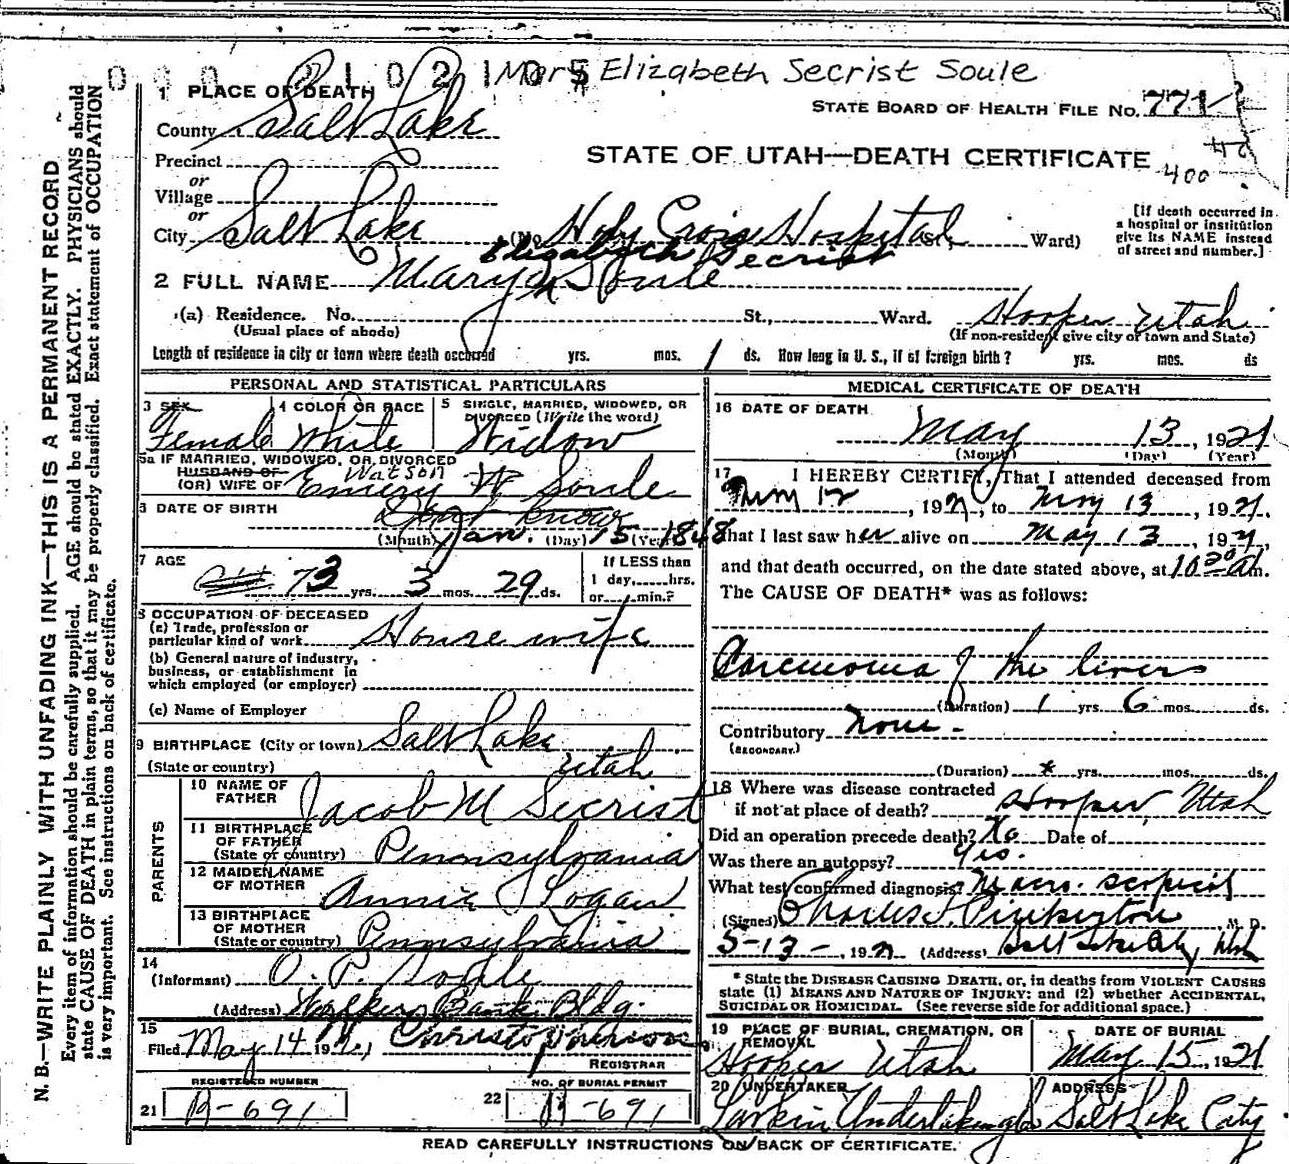 Mary Elizabeth Secrist Soule
1 PLACE OF DEATH
STATE BOARD OF HEALTH FILE NO. 771
County Salt Lake
STATE OF UTAH—DEATH CERTIFICATE
400
Precinct
or
Village
or
City Salt Lake (No. Holy Cross Hospital St., Ward)
[If death occurred in a hospital or institution give its NAME instead of street and number.]
Elizabeth Secrist
2 FULL NAME Mary Soule
(a) Residence. No. St., Ward. Hooper Utah
(Usual place of abode) (If non-resident give city or town and State)
Length of residence in city or town where death occurred yrs. mos. 1 ds. How long in U. S., if of foreign birth? yrs. mos. ds
PERSONAL AND STATISTICAL PARTICULARS
3 SEX Female
4 COLOR OR RACE White
5 SINGLE, MARRIED, WIDOWED, OR DIVORCED (Write the word) Widow
5a IF MARRIED, WIDOWED, OR DIVORCED
HUSBAND OF Watson
(OR) WIFE OF Emery W Soule
6 DATE OF BIRTH Dont know
(Month) Jan. (Day) 15 (Year) 1848
7 AGE 73 yrs. 3 mos. 29 ds.
If LESS than 1 day, hrs. or min.?
8 OCCUPATION OF DECEASED
(a) Trade, profession or particular kind of work Housewife
(b) General nature of industry, business, or establishment in which employed (or employer)
(c) Name of Employer
9 BIRTHPLACE (City or town) Salt Lake
(State or country) Utah
PARENTS
10 NAME OF FATHER Jacob M Secrist
11 BIRTHPLACE OF FATHER (State or country) Pennsylvania
12 MAIDEN NAME OF MOTHER Annie Logan
13 BIRTHPLACE OF MOTHER (State or country) Pennsylvania
14
(Informant) O. P. Soule
(Address) Walkers Bank Bldg.
15
Filed May 14 1921
REGISTRAR
REGISTERED NUMBER
21 B-691
NO. OF BURIAL PERMIT
22 B-691
MEDICAL CERTIFICATE OF DEATH
16 DATE OF DEATH
May 13, 1921
(Month) (Day) (Year)
17 I HEREBY CERTIFY, That I attended deceased from
May 12, 1921, to May 13, 1921.
that I last saw her alive on May 13 1921,
and that death occurred, on the date stated above, at 10 30 a.m.
The CAUSE OF DEATH* was as follows:
Carcinoma of the liver
(Duration) 1 yrs. 6 mos. ds.
Contributory None -
(SECONDARY.)
(Duration) * yrs. mos. ds.
18 Where was disease contracted
if not at place of death? Hooper, Utah
Did an operation precede death? No Date of
Was there an autopsy? Yes.
What test confirmed diagnosis? Macro. scopical
(Signed) Charles Pinkerton, M. D.
5-13-, 1921 (Address) Salt Lake City, Utah
* State the DISEASE CAUSING DEATH, or, in deaths from VIOLENT CAUSES
state (1) MEANS AND NATURE OF INJURY; and (2) whether ACCIDENTAL,
SUICIDAL OR HOMICIDAL. (See reverse side for additional space.)
19 PLACE OF BURIAL, CREMATION, OR REMOVAL
Hooper Utah
DATE OF BURIAL
May 15, 1921
20 UNDERTAKER
Larkin Undertaking Co
ADDRESS
Salt Lake City
READ CAREFULLY INSTRUCTIONS ON BACK OF CERTIFICATE.
N. B.—WRITE PLAINLY WITH UNFADING INK—THIS IS A PERMANENT RECORD
Every item of information should be carefully supplied. AGE should be stated EXACTLY. PHYSICIANS should
state CAUSE OF DEATH in plain terms, so that it may be properly classified. Exact statement of OCCUPATION
is very important. See instructions on back of certificate.